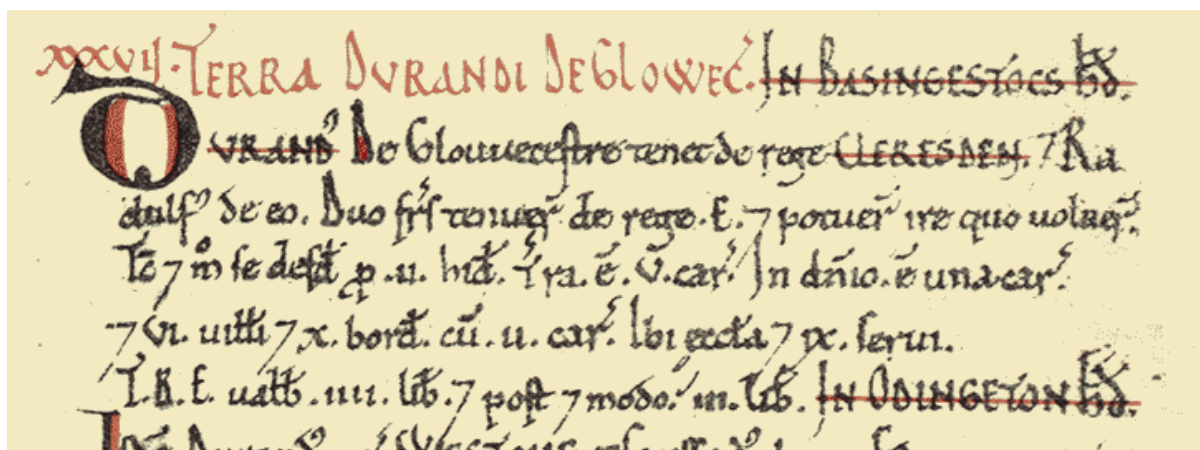 XXXVII. TERRA DURANDI DE GLOWEC̄. IN BASINGESTOCS HD̄.
DURAND' De Glouuecestre tenet de rege CLERESDEN. ⁊ Ra
dulf' de eo. Duo fr̄s tenuer̄ de rege .E. ⁊ potuer̄ ire quo uoluer̄.
Tc̄ ⁊ m° se defd̄ p .II. hid̄. T'ra .ē. V. car̄. In dn̄io .ē una car̄.
⁊ VI. uilłi ⁊ X. bord̄. cū .II. car̄. Ibi æccła ⁊ IX. serui.
T.R.E. uałb .IIII. lib̄. ⁊ post ⁊ modo .III. lib̄. IN ODINGETON HD̄.